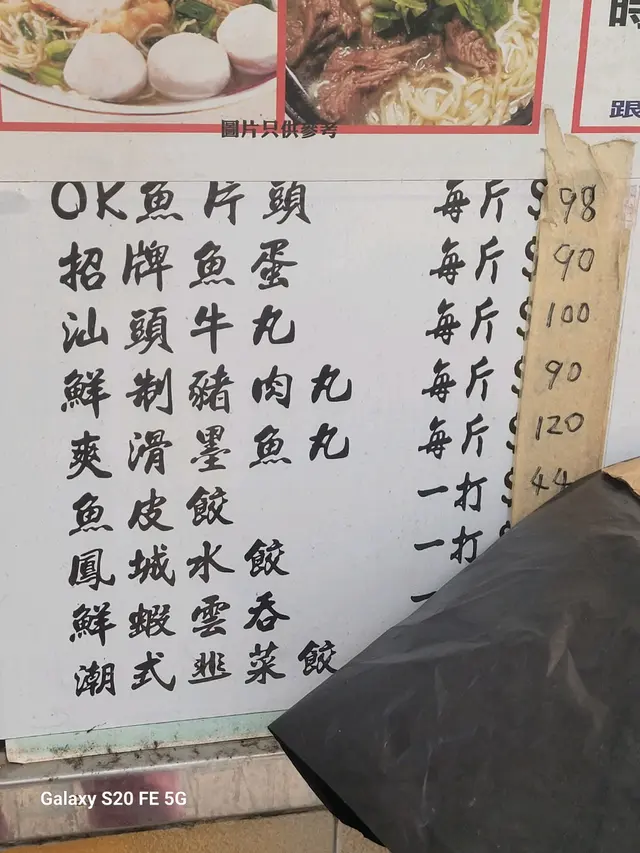 時
跟
圖片只供參考
OK魚片頭 每斤 $ 98
招牌魚蛋 每斤 $ 90
汕頭牛丸 每斤 $ 100
鮮制豬肉丸 每斤 $ 90
爽滑墨魚丸 每斤 $ 120
魚皮餃 一打 $ 44
鳳城水餃 一打
鮮蝦雲吞 一
潮式韭菜餃
Galaxy S20 FE 5G